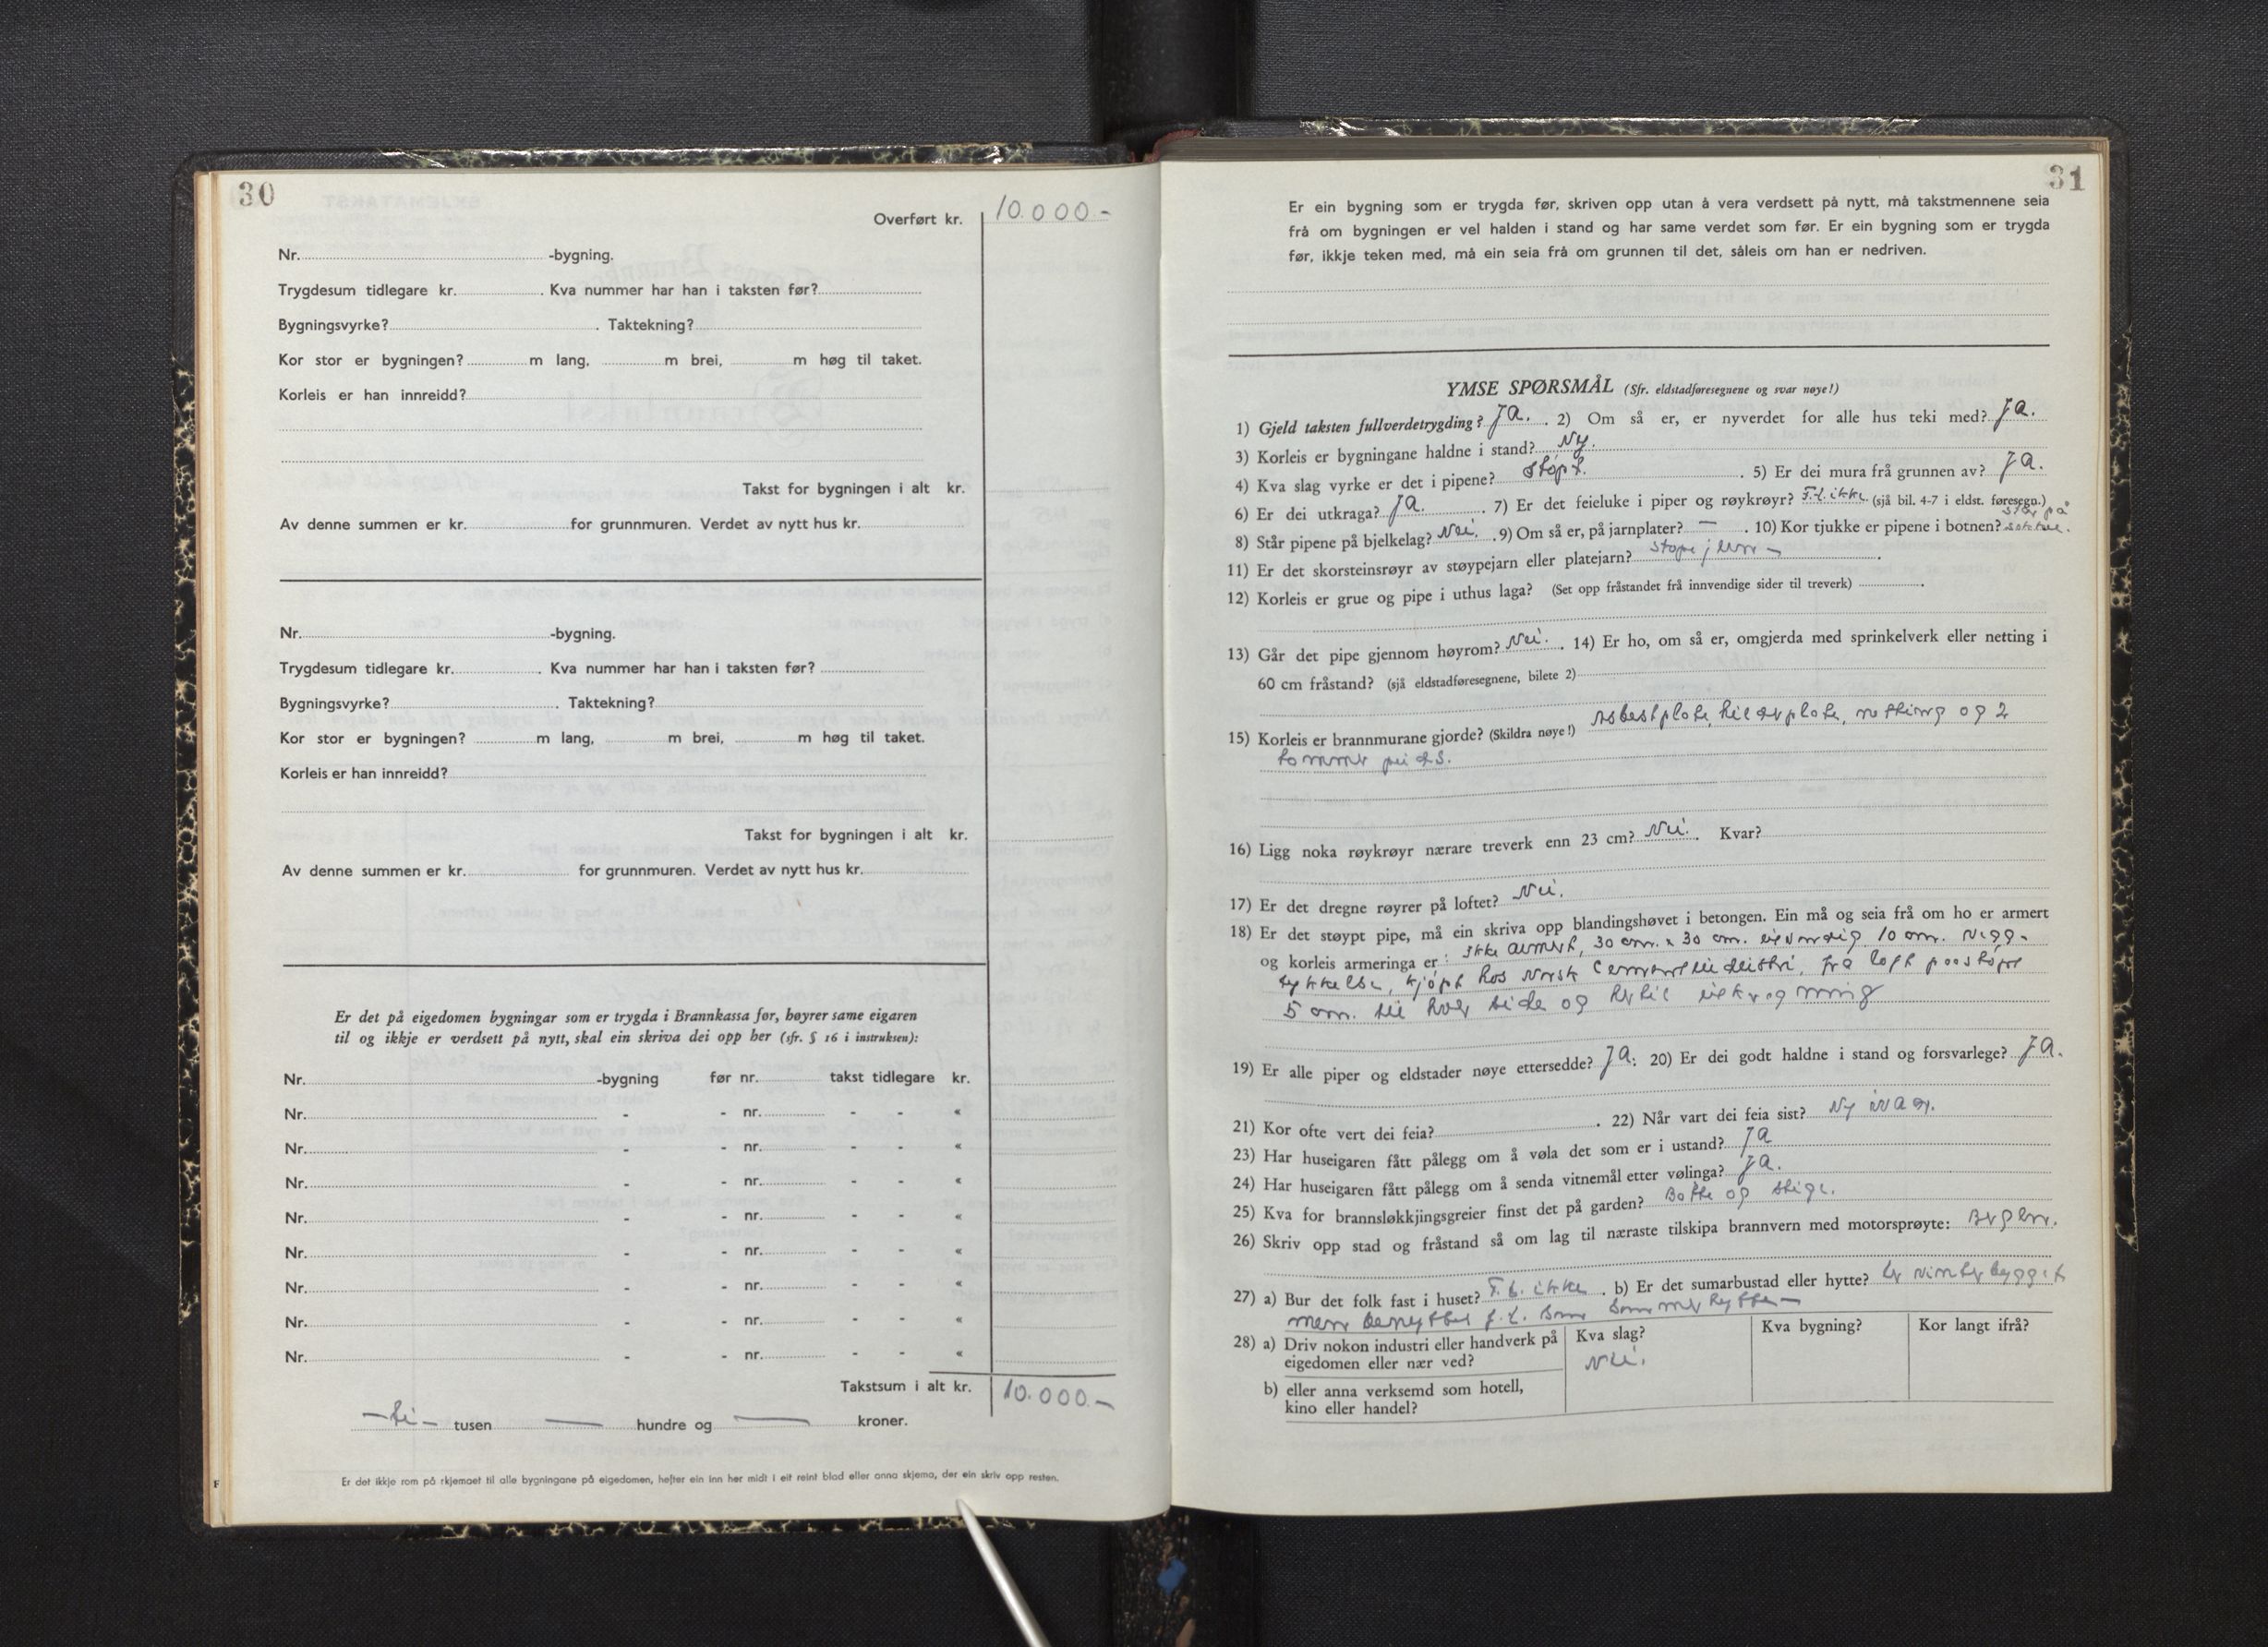 30
Overført kr. 10.000-
Nr. -bygning.
Trygdesum tidlegare kr. . Kva nummer har han i taksten før?
Bygningsvyrke? . Taktekning?
Kor stor er bygningen? m lang, m brei, m høg til taket.
Korleis er han innreidd?
Takst for bygningen i alt kr.
Av denne summen er kr. for grunnmuren. Verdet av nytt hus kr.
Nr. -bygning.
Trygdesum tidlegare kr. . Kva nummer har han i taksten før?
Bygningsvyrke? . Taktekning?
Kor stor er bygningen? m lang, m brei, m høg til taket.
Korleis er han innreidd?
Takst for bygningen i alt kr.
Av denne summen er kr. for grunnmuren. Verdet av nytt hus kr.
Er det på eigedomen bygningar som er trygda i Brannkassa før, høyrer same eigaren
til og ikkje er verdsett på nytt, skal ein skriva dei opp her (sfr. § 16 i instruksen):
Nr. -bygning før nr. takst tidlegare kr.
Nr. - - nr. - - «
Nr. - - nr. - - «
Nr. - - nr. - - «
Nr. - - nr. - - «
Nr. - - nr. - - «
Nr. - - nr. - - «
Nr. - - nr. - - «
Nr. - - nr. - - «
Takstsum i alt kr. 10.000.-
- ti - tusen — hundre og — kroner.
Er det ikkje rom på rkjemaet til alle bygningane på eigedomen, hefter ein inn her midt i eit reint blad eller anna skjema, der ein skriv opp resten.
F
31
Er ein bygning som er trygda før, skriven opp utan å vera verdsett på nytt, må takstmennene seia
frå om bygningen er vel halden i stand og har same verdet som før. Er ein bygning som er trygda
før, ikkje teken med, må ein seia frå om grunnen til det, såleis om han er nedriven.
YMSE SPØRSMÅL (Sfr. eldstadføresegnene og svar nøye!)
1) Gjeld taksten fullverdetrygding? Ja. . 2) Om så er, er nyverdet for alle hus teki med? Ja.
3) Korleis er bygningane haldne i stand? Ny.
4) Kva slag vyrke er det i pipene? støpt. . 5) Er dei mura frå grunnen av? Ja.
6) Er dei utkraga? Ja. . 7) Er det feieluke i piper og røykrøyr? F.t. ikke. (sjå bil. 4-7 i eldst. føresegn.)
8) Står pipene på bjelkelag? Nei. . 9) Om så er, på jarnplater? — . 10) Kor tjukke er pipene i botnen? står på sokkel.
11) Er det skorsteinsrøyr av støypejarn eller platejarn? støpejern - .
12) Korleis er grue og pipe i uthus laga? (Set opp fråstandet frå innvendige sider til treverk) .
13) Går det pipe gjennom høyrom? Nei. . 14) Er ho, om så er, omgjerda med sprinkelverk eller netting i
60 cm fråstand? (sjå eldstadføresegnene, bilete 2)
15) Korleis er brannmurane gjorde? (Skildra nøye!) Asbestplate, heltexplate, netting og 2
tommer puds.
16) Ligg noka røykrøyr nærare treverk enn 23 cm? Nei. . Kvar?
17) Er det dregne røyrer på loftet? Nei.
18) Er det støypt pipe, må ein skriva opp blandingshøvet i betongen. Ein må og seia frå om ho er armert
og korleis armeringa er: ikke armert, 30 cm. x 30 cm. utvendig 10 cm. vegg-
tykkelse, kjøpt hos Norsk Cementindustri, fra loft paastøpt
5 cm. til hver side og hertil utkragning
19) Er alle piper og eldstader nøye ettersedde? Ja: 20) Er dei godt haldne i stand og forsvarlege? Ja.
21) Kor ofte vert dei feia? . 22) Når vart dei feia sist? Ny ivaar.
23) Har huseigaren fått pålegg om å vøla det som er i ustand? Ja
24) Har huseigaren fått pålegg om å senda vitnemål etter vølinga? Ja.
25) Kva for brannsløkkjingsgreier finst det på garden? Bøtte og stige.
26) Skriv opp stad og fråstand så om lag til næraste tilskipa brannvern med motorsprøyte: Bergen.
27) a) Bur det folk fast i huset? F.t. ikke . b) Er det sumarbustad eller hytte? Er vinterbygget
men benyttes f.t. som sommerhytte -
28) a) Driv nokon industri eller handverk på eigedomen eller nær ved? Kva slag? Kva bygning? Kor langt ifrå?
Nei.
b) eller anna verksemd som hotell,
kino eller handel?